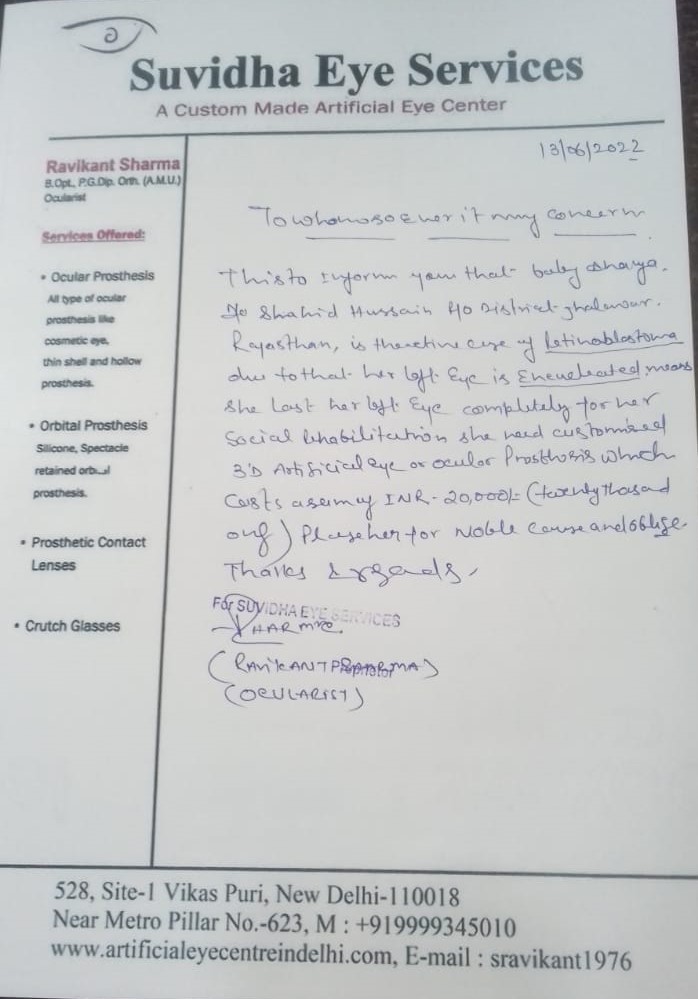 Suvidha Eye Services
A Custom Made Artificial Eye Center
Ravikant Sharma
B.Opt., P.G.Dip. Orth. (A.M.U.)
Ocularist
Services Offered:
• Ocular Prosthesis
All type of ocular
prosthesis like
cosmetic eye,
thin shell and hollow
prosthesis.
• Orbital Prosthesis
Silicone, Spectacle
retained orbital
prosthesis.
• Prosthetic Contact
Lenses
• Crutch Glasses
13/06/2022
To whomsoever it may concern
This to inform you that baby
D/o Shahid Hussain R/o District
Rajasthan, is the active case of Retinoblastoma
due to that her left Eye is Eneucleated, means
she Last her left Eye completely for her
Social Rehabilitation she need customised
3'D Artificial eye or ocular Prosthesis which
Costs a sum of INR- 20,000/- (twenty thosad
only) Please her for Noble cause and oblige.
Thanks & regards,
For SUVIDHA EYE SERVICES
SHARMA
Proprietor
(RAVIKANT SHARMA)
(OCULARIST)
528, Site-1 Vikas Puri, New Delhi-110018
Near Metro Pillar No.-623, M : +919999345010
www.artificialeyecentreindelhi.com, E-mail : sravikant1976